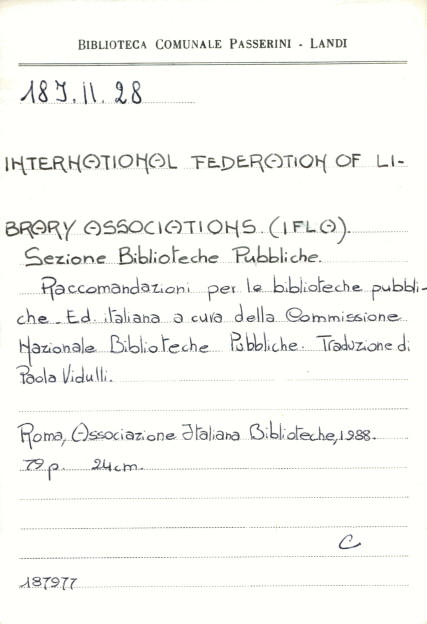 BIBLIOTECA COMUNALE PASSERINI - LANDI
18 J. II. 28
INTERNATIONAL FEDERATION OF LI-
BRARY ASSOCIATIONS. (IFLA).
Sezione Biblioteche Pubbliche.
Raccomandazioni per le biblioteche pubbli-
che. Ed. italiana a cura della Commissione
Nazionale Biblioteche Pubbliche. Traduzione di
Paola Vidulli.
Roma, Associazione Italiana Biblioteche, 1988.
79 p. 24 cm.
C
187977